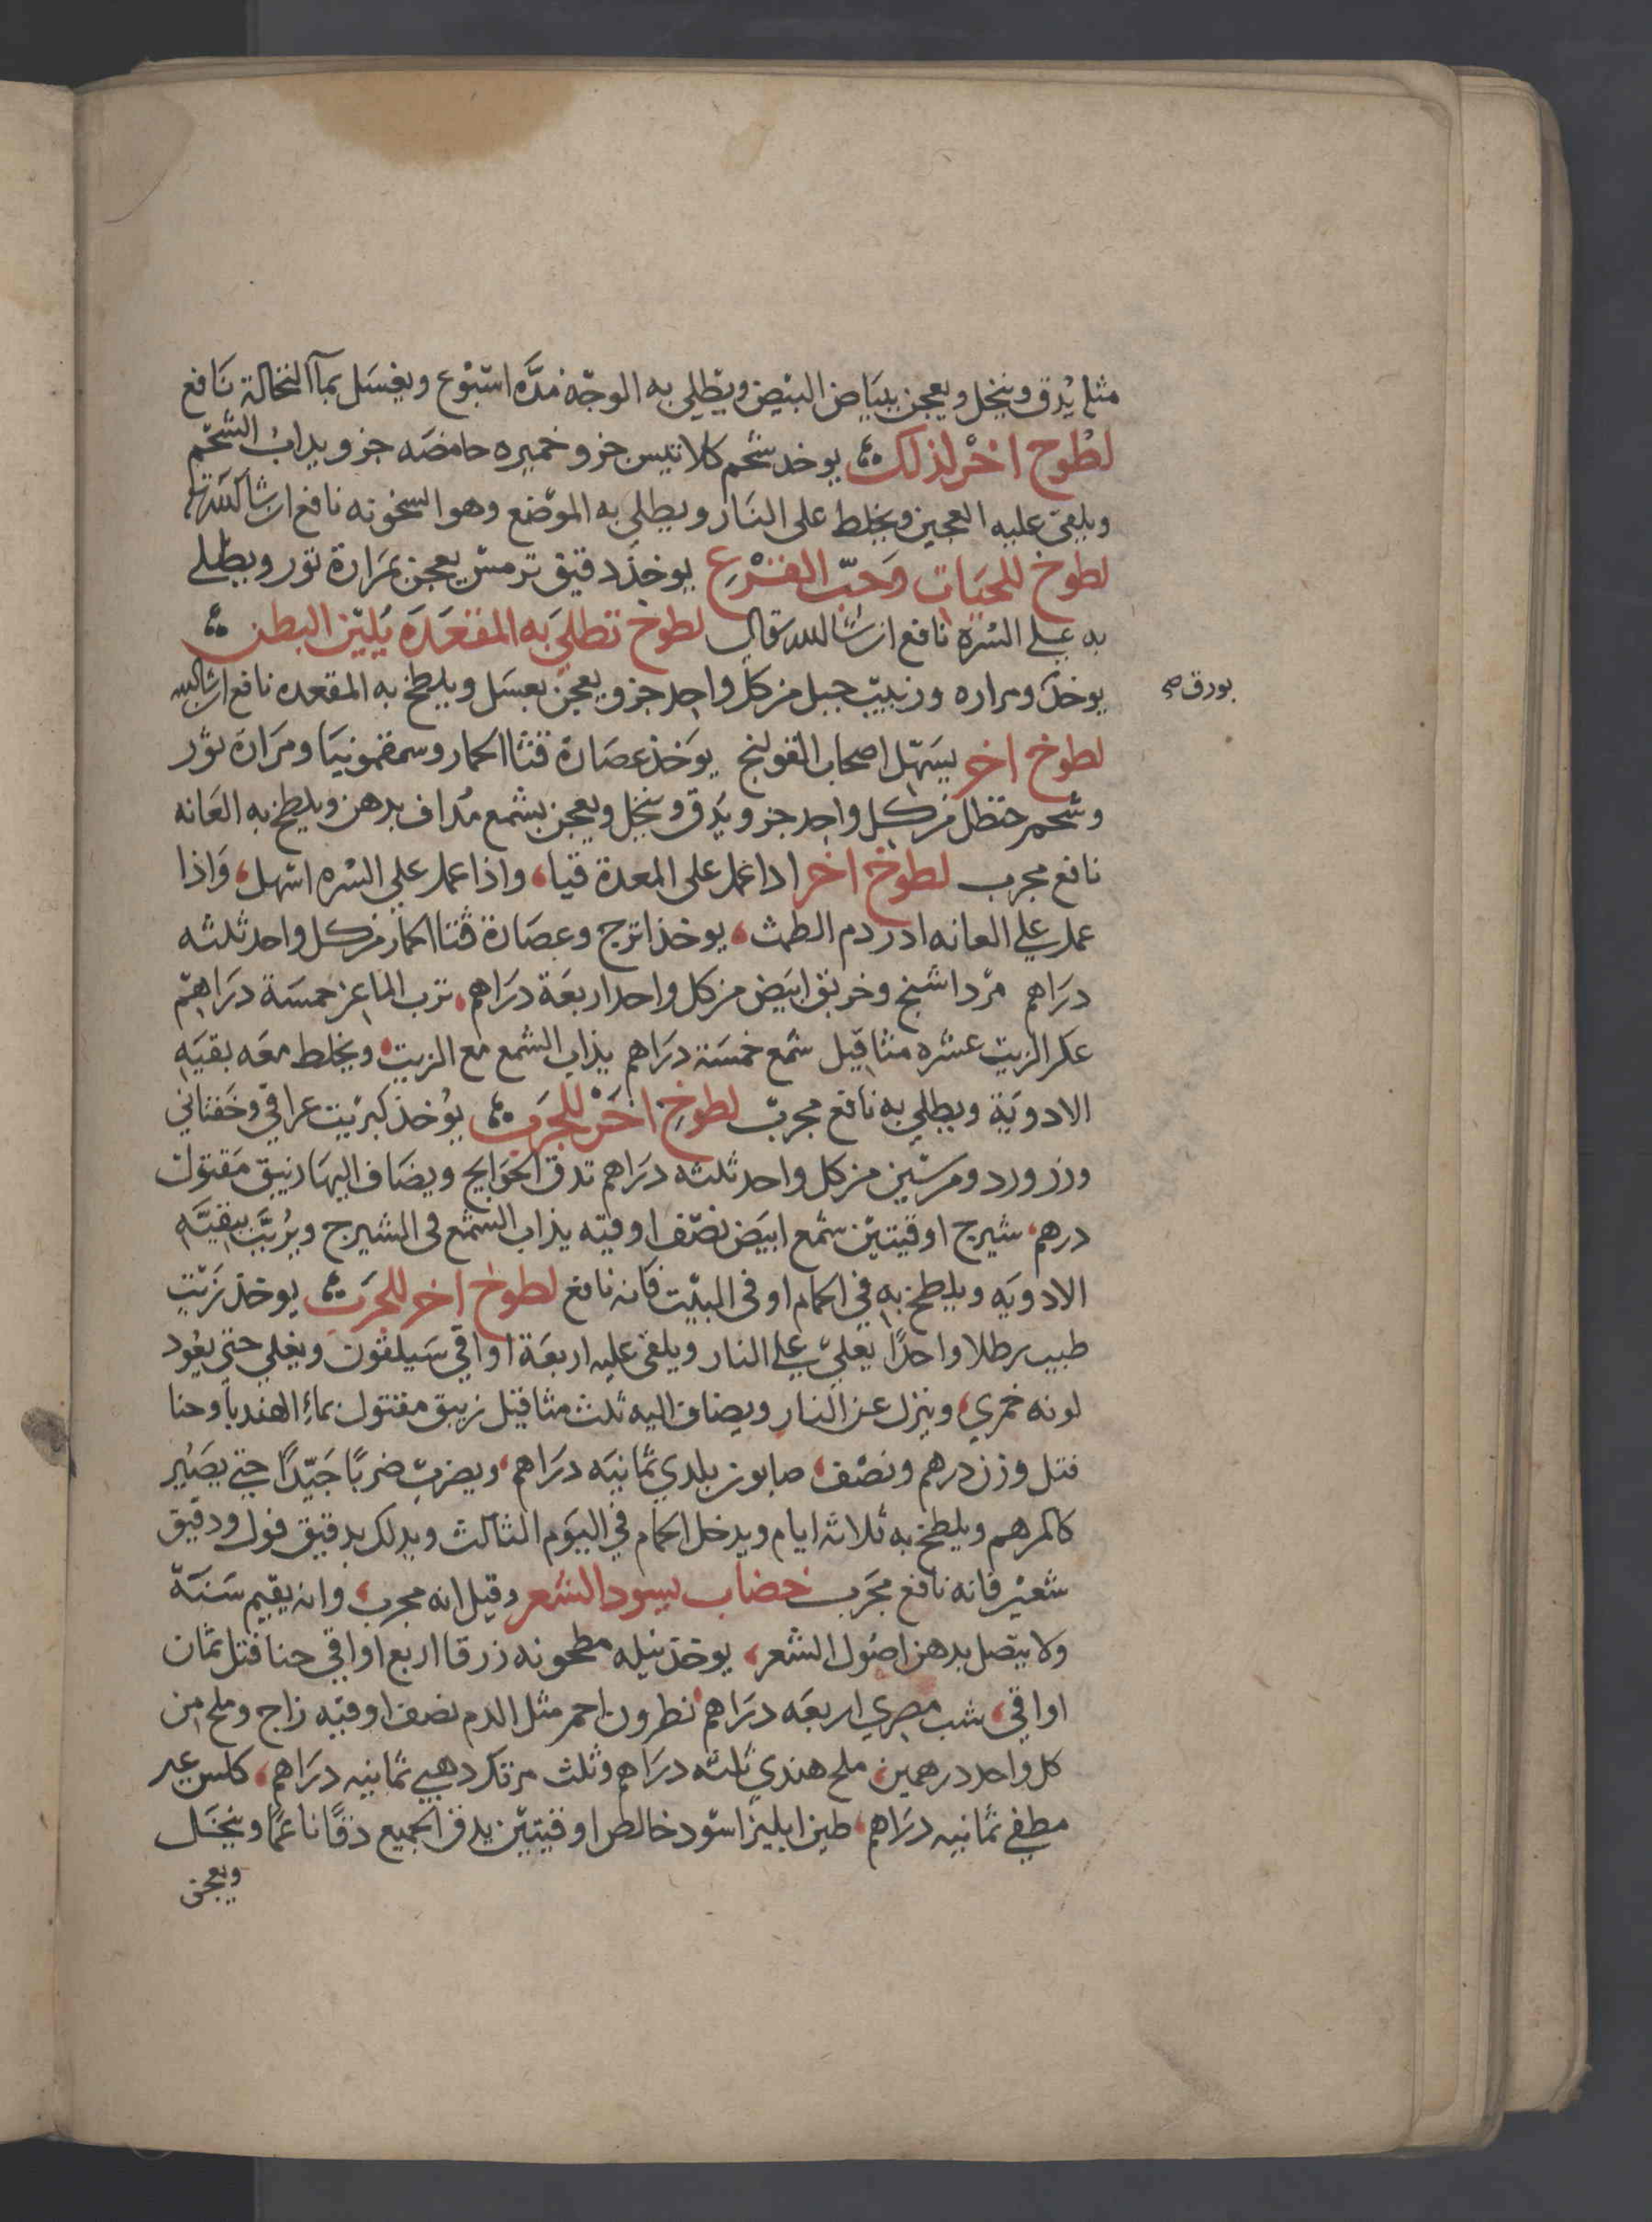 مثله يُدق وينخل ويعجن ببياض البيض ويطلي به الوجه مدّه اسبوع ويغسل بمآ النخالة نافع
لطوخ اخر لذلك يوخد شحم كلا تيس جزو خميره حامضه جزو يداب الشحم
ويلقى عليه العجين ويخلط على النار ويطلي به الموضع وهو السخونه نافع ان شا الله تعالى
لطوخ للحيات وحبّ القرع يوخذ دقيق ترمس يعجن بمرارة ثور ويطلى
به على السره نافع ان شا الله تعالى لطوخ تطلي به المقعده يُليّن البطن
يوخذ ومراره وزبيب جبل من كل واحد جزو يعجن بعسل ويلطخ به المقعده نافع ان شا الله
بورق صح
لطوخ اخر يسهّل اصحاب القولنج يوخذ عصارة قثا الحمار وسمقمونيا ومرارة ثور
وشحم حنظل من كل واحد جزو يدق وينخل ويعجن بشمع مُداف بدهن ويلطخ به العانه
نافع مجرب لطوخ اخر ادا عمل على المعدة قيا، واذا عمل على السره اسهل، واذا
عمل على العانه ادر دم الطمث، يوخذ اترج وعصارة قثا الحمار من كل واحد ثلثه
دراهم مرداسنج وخربق ابيض من كل واحد اربعة دراهم، ترب الماعز خمسة دراهم
عكر الزيت عشره مثاقيل شمع خمسة دراهم يذاب الشمع مع الزيت ويخلط معه بقيه
الادوية ويطلي به نافع مجرب لطوخ اخر للجرب يُوخذ كبريت عراقي وخفثاني
وزر ورد ومرسين من كل واحد ثلثه دراهم تدق الحوايج ويضاف اليها زيبق مقتول
درهم، شيرج اوقيتين شمع ابيض نصف اوقيه يذاب الشمع في الشيرج ويُربّب ببقيّه
الادويه ويلطخ به في الحمام او في البيت فانه نافع لطوخ اخر للجرب يوخذ زيت
طيب رطلا واحدًا يغلي على النار ويلقى عليه اربعة اواقي سيلقون ويغلي حتى يعود
لونه خمري، وينزل عن النار ويضاف اليه ثلث مثاقيل زيبق مقتول بماء الهندبا وحنا
فتل وزن درهم ونصف، صابون بلدي ثمانيه دراهم، ويضرب ضربًا جيّدًا حتى يصير
كالمرهم ويلطخ به ثلاثة ايام ويدخل الحمام في اليوم الثالث ويدلك بدقيق فول ودقيق
شعير فانه نافع مجرب خضاب يسود الشعر وقيل انه مجرب، وانه يقيم سنة
ولا يتصل بدهن اصول الشعر، يوخذ نيله مطحونه زرقا اربع اواقي حنا فتل ثمان
اواقي، شب مصري اربعه دراهم نطرون احمر مثل الدم نصف اوقيه زاج وملح من
كل واحد درهمين، ملح هندي ثلثه دراهم وثلث مرتك دهبي ثمانيه دراهم، كلس غير
مطفي ثمانيه دراهم، طين ابليز اسود خالص اوقيتين يدق الجميع دقًا ناعمًا وينخل
ويعجن